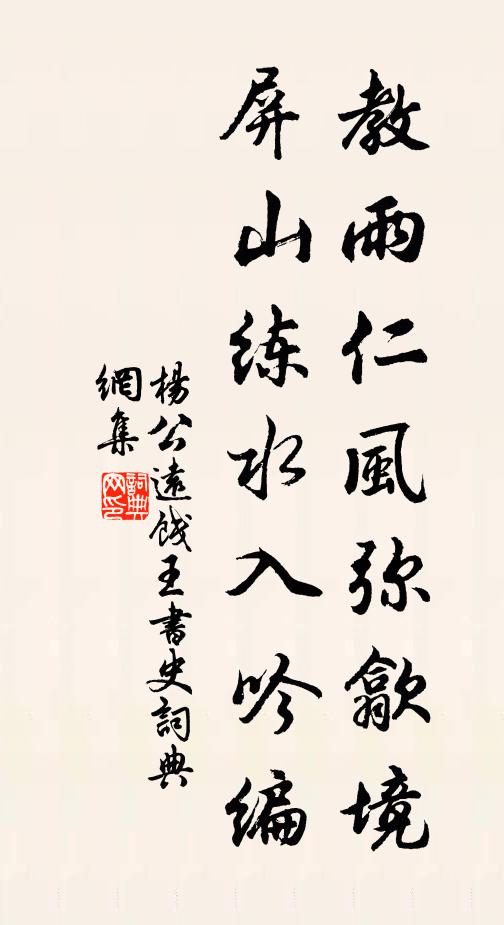 教雨仁風弥歙境
屏山练水入吟编
楊公遠餞王書史詞典
網集
詞典
网印